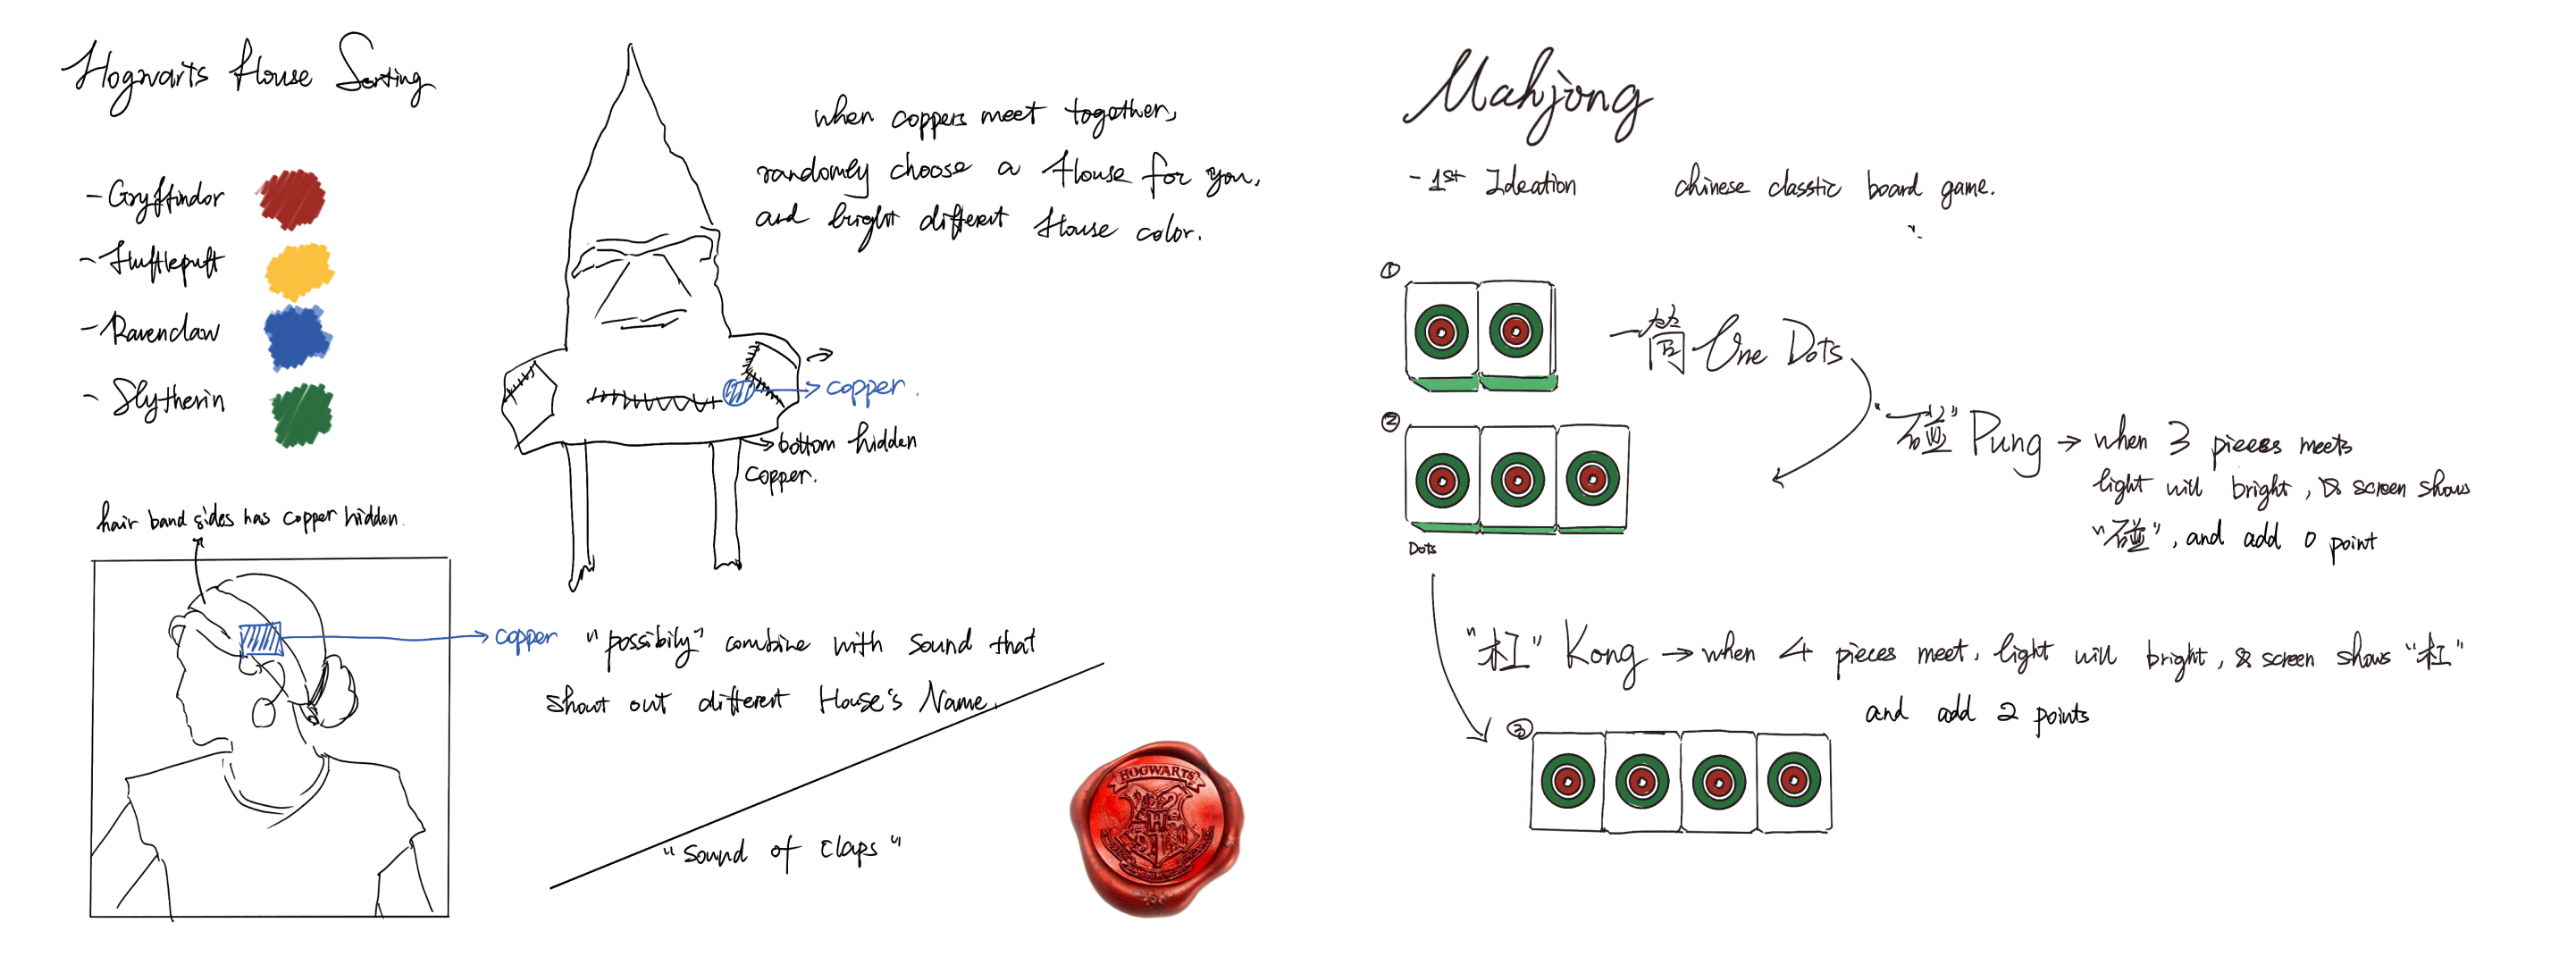 Hogwarts House Sorting
- Gryffindor
- Hufflepuff
- Ravenclaw
- Slytherin
when coppers meet together,
randomly choose a House for you,
and bright different House color.
copper.
bottom hidden
copper.
hair band sides has copper hidden.
copper
"possibily" combine with sound that
shout out different House's Name.
"Sound of Claps"
HOGWARTS
H
Mahjong
- 1st Ideation
chinese classtic board game.
①
一筒 One Dots
②
"碰" Pung → when 3 pieces meets
light will bright, & screen shows
"碰", and add 0 point
Dots
"杠" Kong → when 4 pieces meet, light will bright, & screen shows "杠"
and add 2 points
③